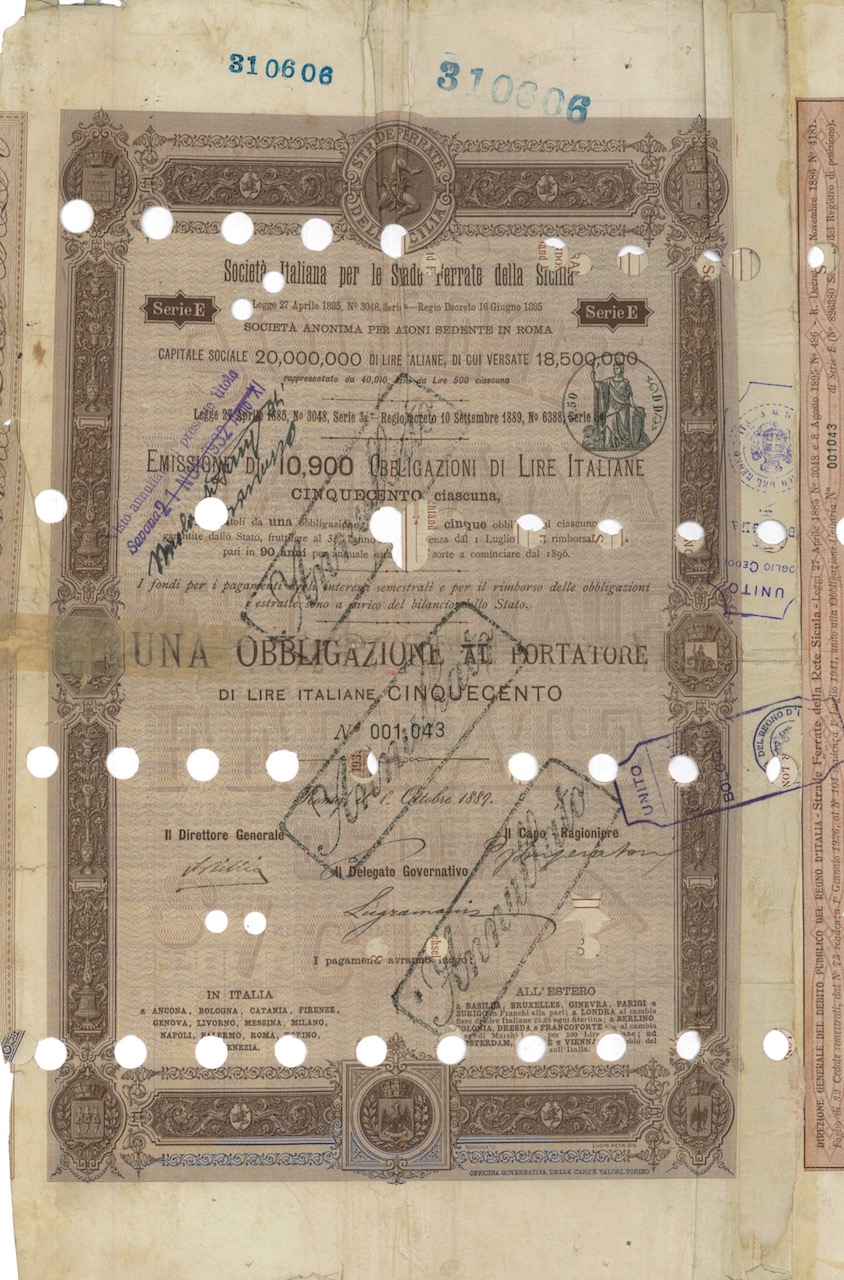 310606
310606
STRADE FERRATE
DELLA SICILIA
Società Italiana per le Strade Ferrate della Sicilia
Serie E
Legge 27 Aprile 1885, Nº 3048, Serie — Regio Decreto 16 Giugno 1885
Serie E
SOCIETÀ ANONIMA PER AZIONI SEDENTE IN ROMA
CAPITALE SOCIALE 20,000,000 DI LIRE ITALIANE, DI CUI VERSATE 18,500,000
rappresentato da 40,000 da Lire 500 ciascuna
Legge 27 Aprile 1885, Nº 3048, Serie 3a - Regio decreto 10 Settembre 1889, Nº 6388, Serie
Visto annulla presente titolo
Savona 21 NOV 1932 Anno XI
EMISSIONE DI 10,900 OBBLIGAZIONI DI LIRE ITALIANE
CINQUECENTO ciascuna,
da una obbligazione cinque ciascuno
garantite dallo Stato, fruttifere al dal 1 Luglio rimborsa
pari in 90 anni per annuale sorte a cominciare dal 1896.
I fondi per i pagamenti degli interessi semestrali e per il rimborso delle obbligazioni
estratte sono a carico del bilancio dello Stato.
UNA OBBLIGAZIONE AL PORTATORE
DI LIRE ITALIANE CINQUECENTO
Nº 001,043
Annullato
Annullato
Annullato
Roma, il 1º Ottobre 1889.
Il Direttore Generale
Il Capo Ragioniere
Il Delegato Governativo
I pagamenti avranno luogo:
IN ITALIA
a ANCONA, BOLOGNA, CATANIA, FIRENZE,
GENOVA, LIVORNO, MESSINA, MILANO,
NAPOLI, PALERMO, ROMA, TORINO,
VENEZIA.
ALL'ESTERO
a BASILEA, BRUXELLES, GINEVRA, PARIGI e
ZURIGO in Franchi alla pari; a LONDRA al cambio
fisso di Lire Italiane 25,25 ogni Sterlina; a BERLINO
COLONIA, DRESDA e FRANCOFORTE s/m al cambio
di Marchi per 100 Lire ; ad
AMSTERDAM, e VIENNA del
sull'Italia.
LUCIO PETA DIS.
OFFICINA GOVERNATIVA DELLE CARTE VALORI. TORINO
UNITO
FOGLIO CEDOLE
UNITO
BOLOG
DEL REGNO D'I
DIREZIONE GENERALE DEL DEBITO PUBBLICO DEL REGNO D'ITALIA - Strade Ferrate della Rete Sicula - Leggi 27 Aprile 1885 Nº 3048 e 8 Agosto 1895 Nº 486 - R. Decreto Novembre 1886 Nº 4181.
Foglio di 39 Cedole semestrali, dal Nº 73 scadenza 1º Gennaio 1926, al Nº 101 scadenza 1º Luglio 1941, unito alla Obbligazione Italiana Nº 001043 di Serie E (Nº 826380 del Registro di posizione).